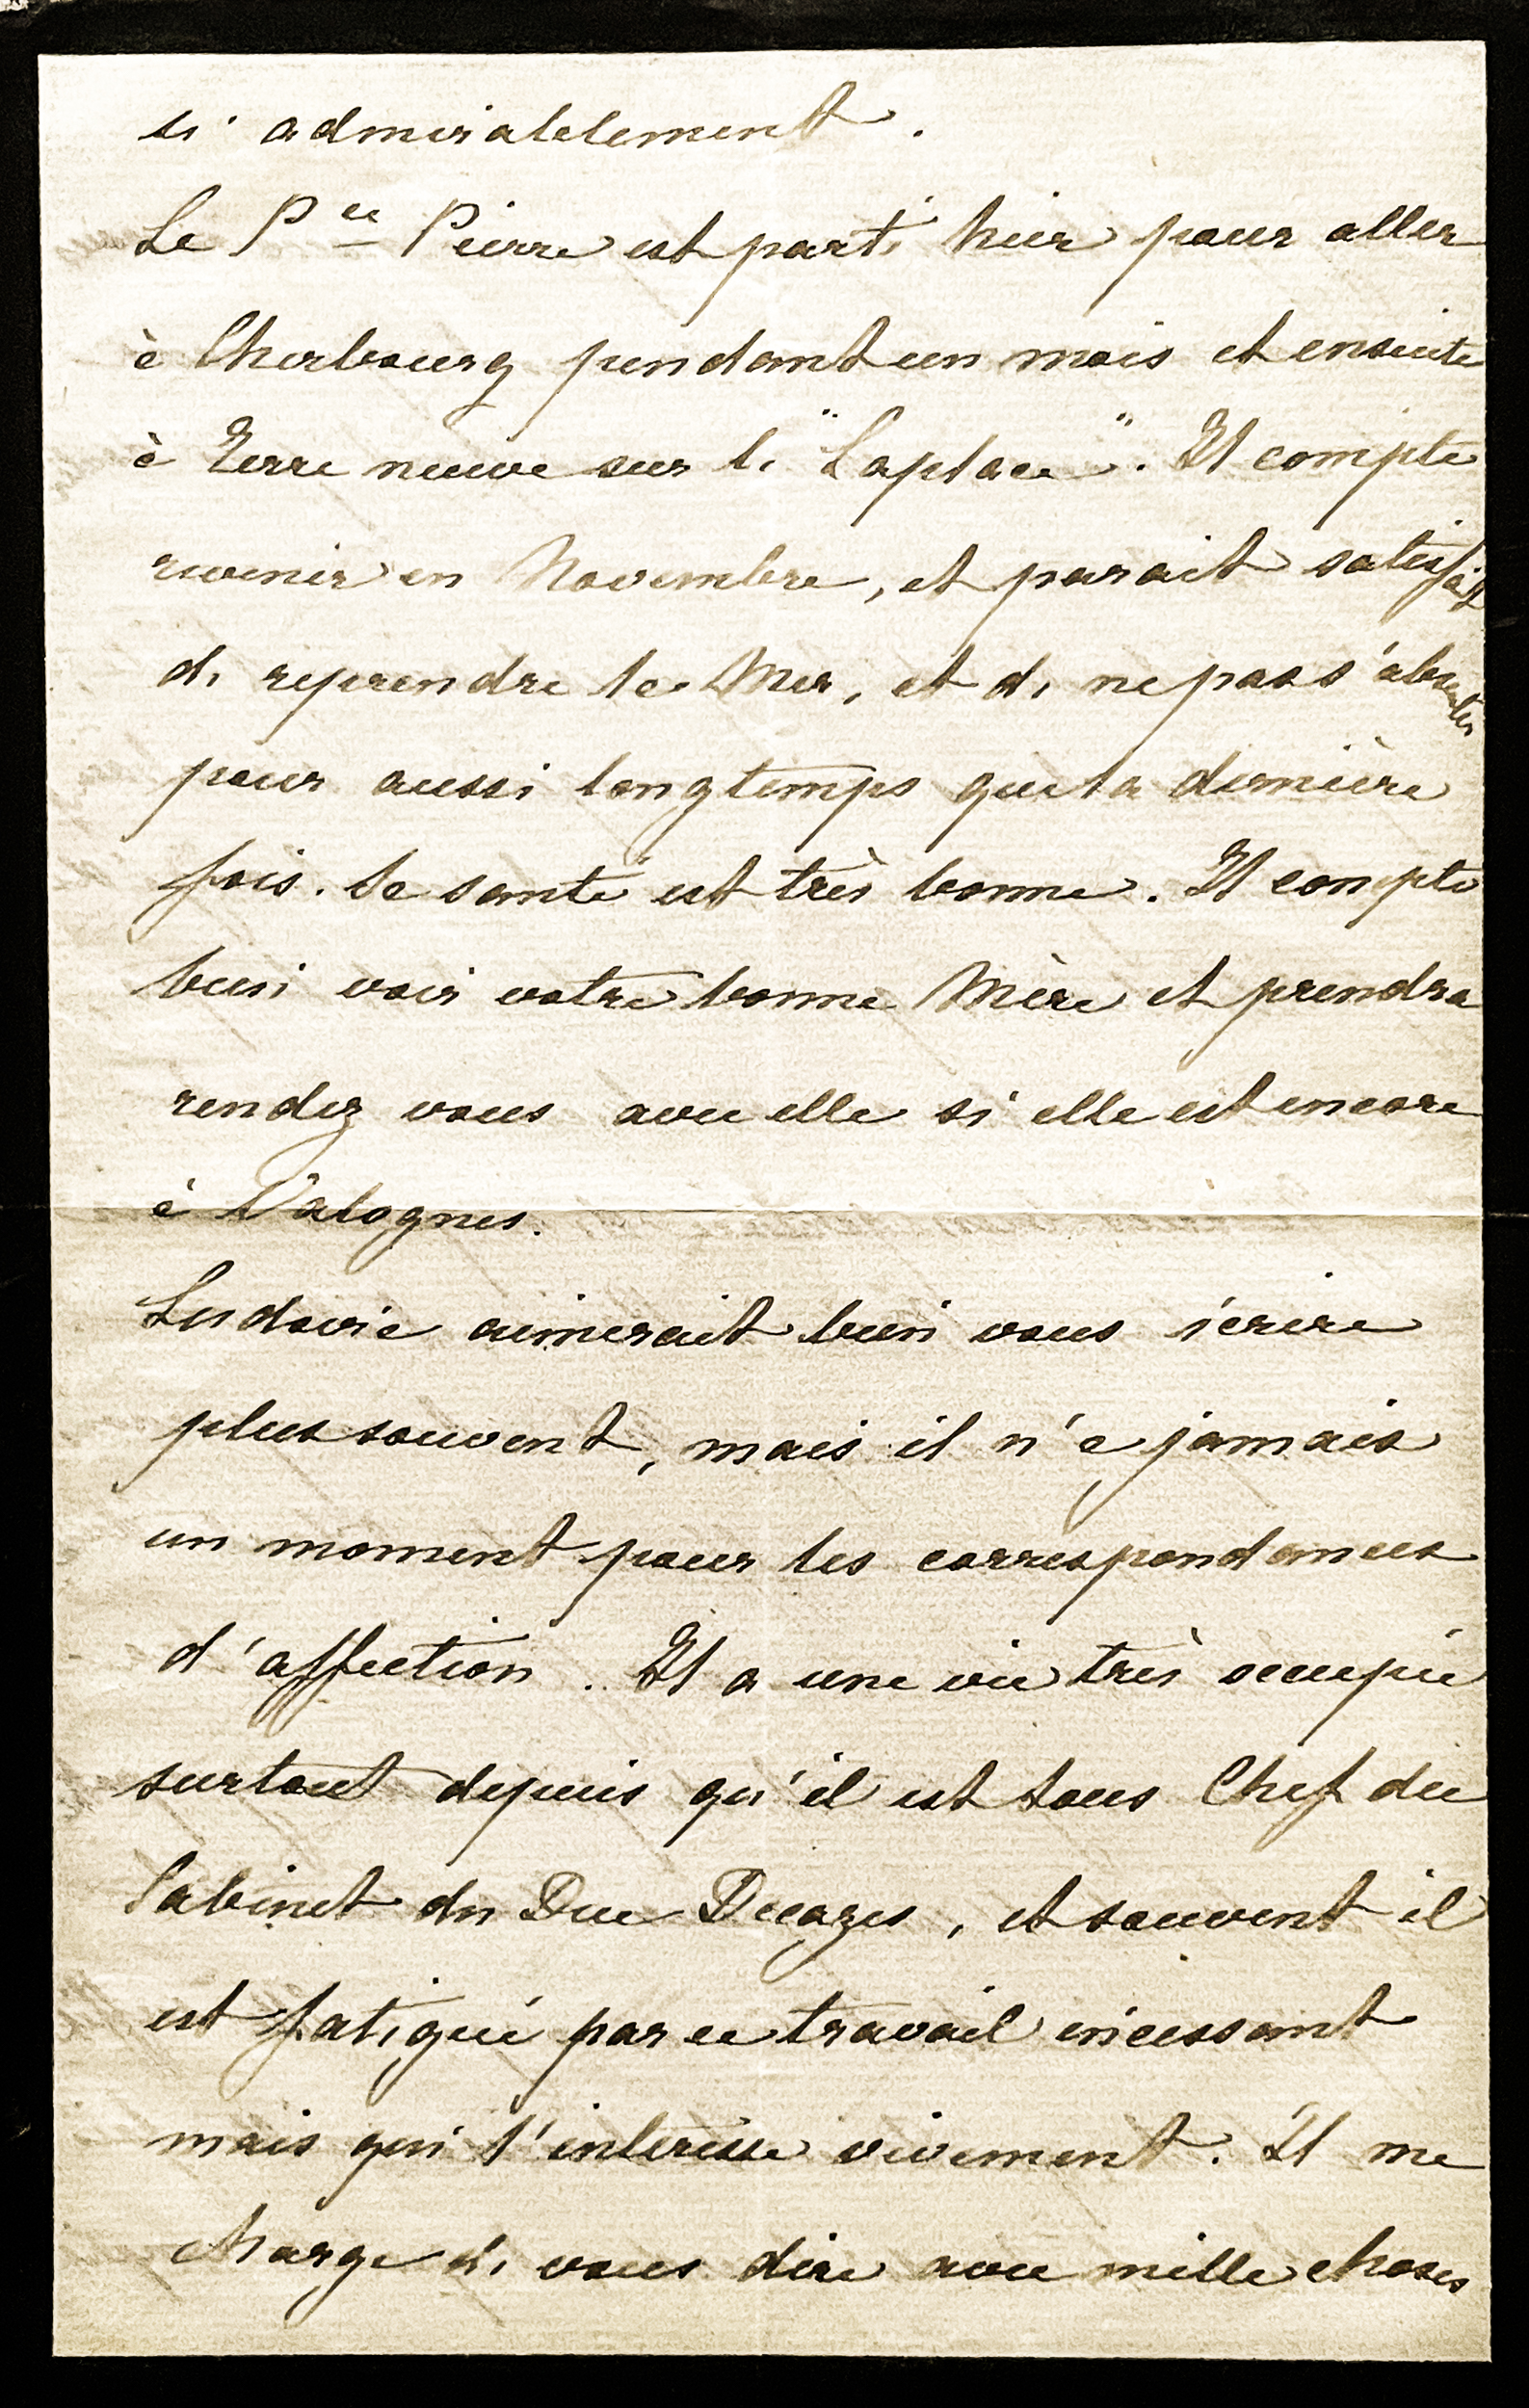 si admirablement.
Le Pce Pierre est parti hier pour aller
à Cherbourg pendant un mois et ensuite
à Terre neuve sur le "Laplace". Il compte
revenir en Novembre, et parait satisfait
de reprendre la Mer, et de ne pas s'absenter
pour aussi longtemps que la dernière
fois. Sa santé est très bonne. Il compte
bien voir votre bonne Mère et prendra
rendez vous avec elle si elle est encore
à Valognes.
Ludovic aimerait bien vous écrire
plus souvent, mais il n'a jamais
un moment pour les correspondances
d'affection. Il a une vie très occupée
surtout depuis qu'il est sous Chef du
Cabinet du Duc Decazes, et souvent il
est fatigué par ce travail incessant
mais qui l'intéresse vivement. Il me
charge de vous dire avec mille choses